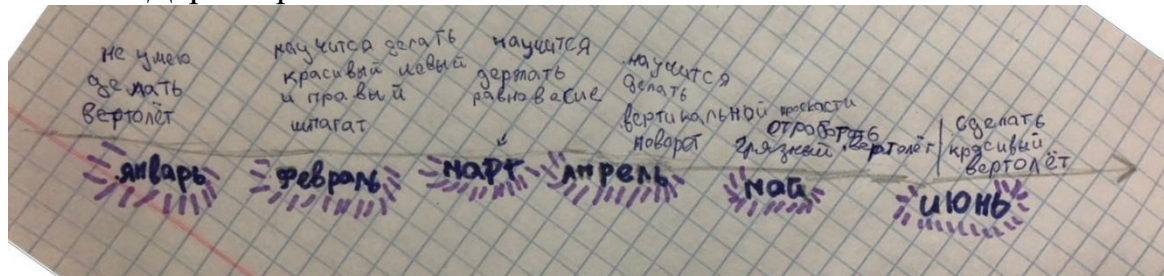 не умею
делать
вертолёт
научится делать
красивый левый
и правый
шпагат
научится
держать
равновесие
научится
делать
вертикальной проскасти
поворот
отработать
грязный вертолёт
сделать
красивый
вертолёт
январь февраль март апрель май июнь